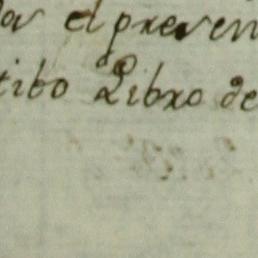 el preven
tibo Libro de